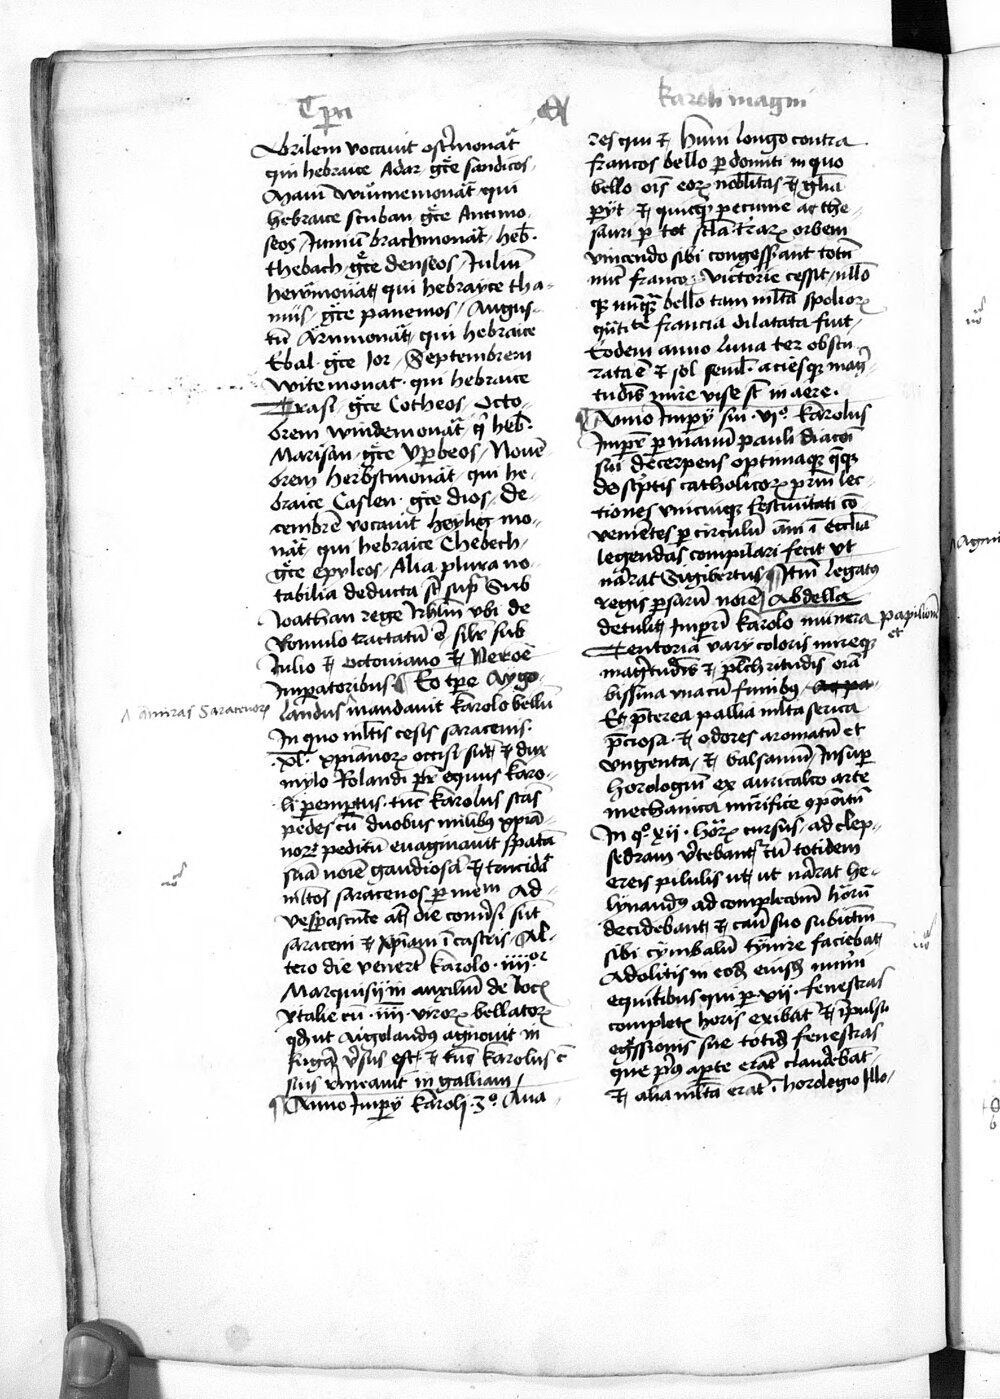 Tpa
Karoli magni
Aprilem vocavit ostermonāt
qui hebraice Adar grē sandicos
Maiū wūnnemonāt qui
hebraice scuban grē Antimo-
seos Juniū brachmonāt heb.
thebach grē denseos Juliū
hewmonāt qui hebrayce tha-
mūs grē panemos Augus-
tū Arnmonāt qui hebraice
Ebal grē Jor Septembrem
witemonat qui hebraice
Trasi grē Cotheos Octo-
brem windemonāt q̄ heb.
Marisan grē yperbeos Novē-
brem herbstmonāt qui he-
braice Caslen grē dios de-
cembrē vocavit heylig mo-
nāt qui hebraice Chebech
grē epyleos Alia plura no-
tabilia deducta st̄ supra Sub
Joathan rege Jhrlm̄ ubi de
Romulo tractatū ē silr̄ sub
Julio et octoviano et Nerōe
Imperatoribus Eo tpe Aygo-
landus mandavit karolo bellū
ʌ amiras Saracenorꝝ
In quo ml̄tis cesis saracenis
.xl. xpianorꝝ occisi sūt et dux
mylo Rolandi pr̄ equus karo-
li peremptus tūc karolus stās
pedes cū duobus milibus xpia-
norꝝ peditū evaginavit spatā
suā noiē gaudiosā et trucidat
ml̄tos saracenos per mediū Ad-
vesperascente autē die conversi sūt
saraceni et xpiani ī castris Al-
tero die venerūt karolo .iiii.or
Marquisii in auxiliū de locis
ytalie cū .iiii. virorꝝ bellatorꝝ
qd̄ ut Aigolandus agnovit in
fugā versus est et tūc karolus cū
suis vineavit in galliam
Anno Impery karoli .3o. Ava-
res qui et huni longo contra
francos bello perdomiti in quo
bello oīs eorꝝ nobilitas et glīa
periit et quicquid pecunie ac the-
sauri per tot scl̄a terrarꝝ orbem
vincendo sibi congesserant totū
in francorꝝ victorie cessit ullo
qꝫ nūquā bello tam ml̄ta spoliorꝝ
quātitate francia dilatata fuit
Eodem anno luna ter obscu-
rata ē et sol semel aciesqꝫ mag-
tudīs mire vise st̄ in aere
Anno Impery sui .vio. karolus
Imper per manū pauli diaconi
sui decerpens optima queqꝫ
de scriptis catholicorꝝ patrum lec-
tiones unicuiqꝫ festivitati cō-
venientes per circulū anni ī Ecclia
legendas compilari fecit ut
narrat Sigibertus Itē legatus
regis persarū noīe Abdella
detulit Imperi karolo munera
papilionē et
Tentoria vary coloris mireqꝫ
magnitudinis et pulchritudinis omnia
bissina unacū funibus
Et preterea pallia ml̄ta serica
preciosa et odores aromatū et
ungenta et balsamū Insuper
horologiū ex auricalco arte
mechanica mirifice cōpositū
In quo .xii. horarꝝ cursus ad clep-
sedram vertebantur cū totidem
ereis pilulis ut narrat he-
lynandus ad completionem horarū
decidebant et casu suo subiectū
sibi cymbalū tynnire faciebāt
Additis in eodem eiusdem numeri
equitibus qui per .xii. fenestras
completis horis exibāt et impulsu
egressionis sue totidem fenestras
que prius aperte erāt claudebāt
et alia ml̄ta erāt ī horologio Illo